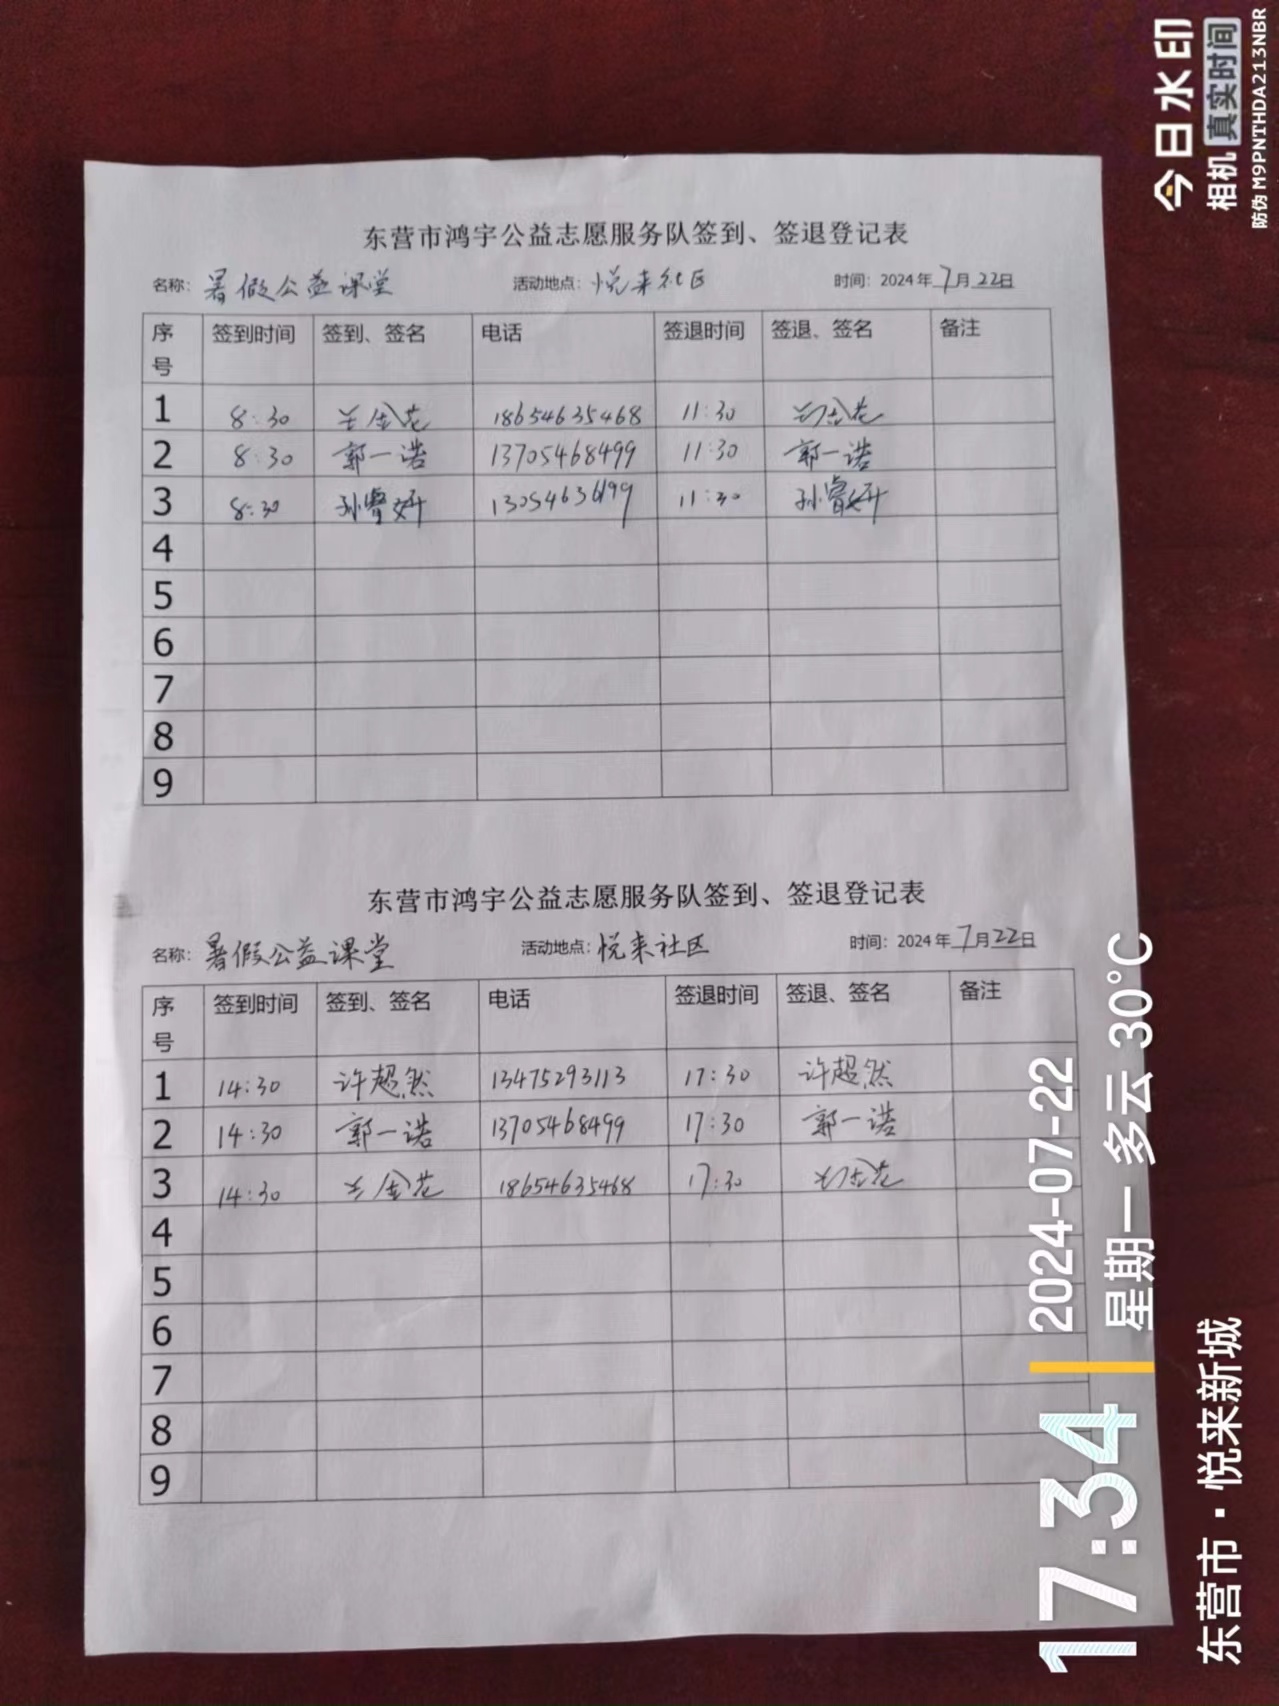 东营市鸿宇公益志愿服务队签到、签退登记表
名称：暑假公益课堂 活动地点：悦来社区 时间：2024年7月22日
序号 签到时间 签到、签名 电话 签退时间 签退、签名 备注
1 8:30 兰金花 18654635468 11:30 兰金花
2 8:30 郭一诺 13705468499 11:30 郭一诺
3 8:30 孙睿妍 11:30 孙睿妍
4
5
6
7
8
9
东营市鸿宇公益志愿服务队签到、签退登记表
名称：暑假公益课堂 活动地点：悦来社区 时间：2024年7月22日
序号 签到时间 签到、签名 电话 签退时间 签退、签名 备注
1 14:30 许超然 13475293113 17:30 许超然
2 14:30 郭一诺 13705468499 17:30 郭一诺
3 14:30 兰金花 18654635468 17:30 兰金花
4
5
6
7
8
9
今日水印
相机 真实时间
防伪 M9PNTHDA213NBR
17:34
2024-07-22
星期一 多云 30°C
东营市·悦来新城